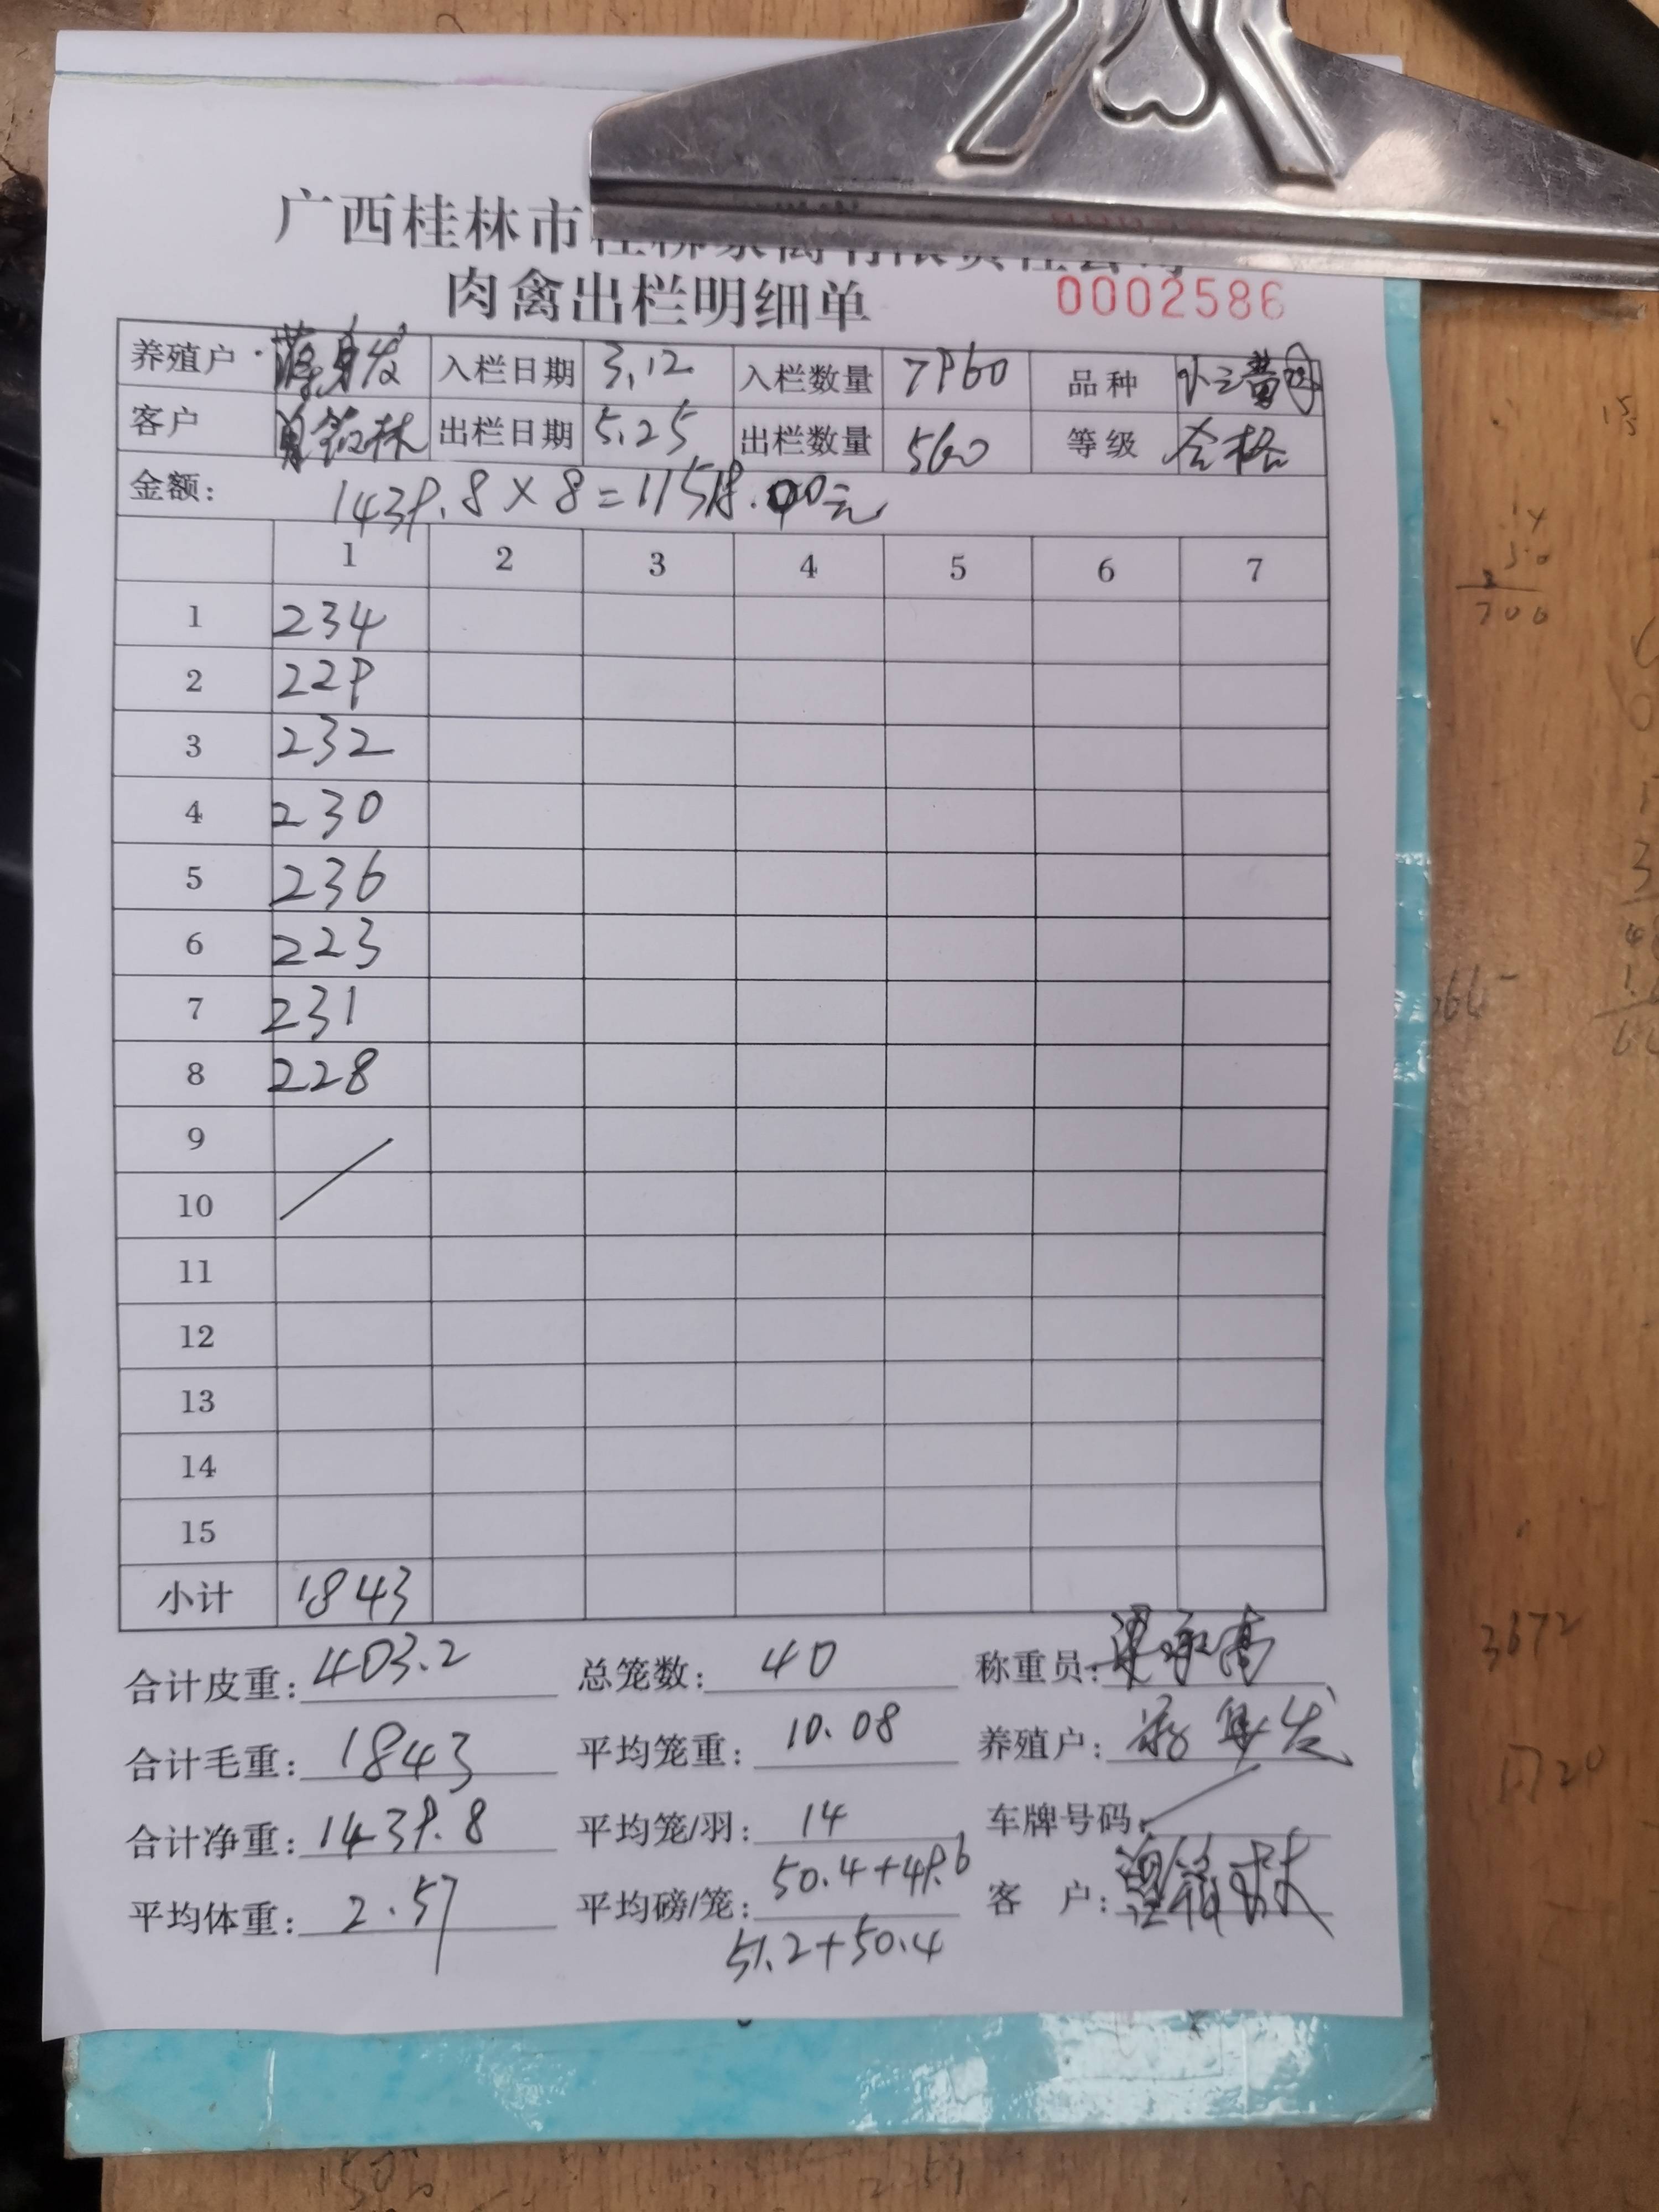 广西桂林市
肉禽出栏明细单 0002586
养殖户 入栏日期 3.12 入栏数量 7960 品种
客户 出栏日期 5.25 出栏数量 560 等级 合格
金额: 1439.8×8=11518.00元
1 2 3 4 5 6 7
1 234
2 229
3 232
4 230
5 236
6 223
7 231
8 228
9
10
11
12
13
14
15
小计 1843
合计皮重: 403.2 总笼数: 40 称重员:
合计毛重: 1843 平均笼重: 10.08 养殖户:
合计净重: 1439.8 平均笼/羽: 14 车牌号码:
平均体重: 2.57 平均磅/笼: 50.4+49.6 客 户:
51.2+50.4
3672
1720